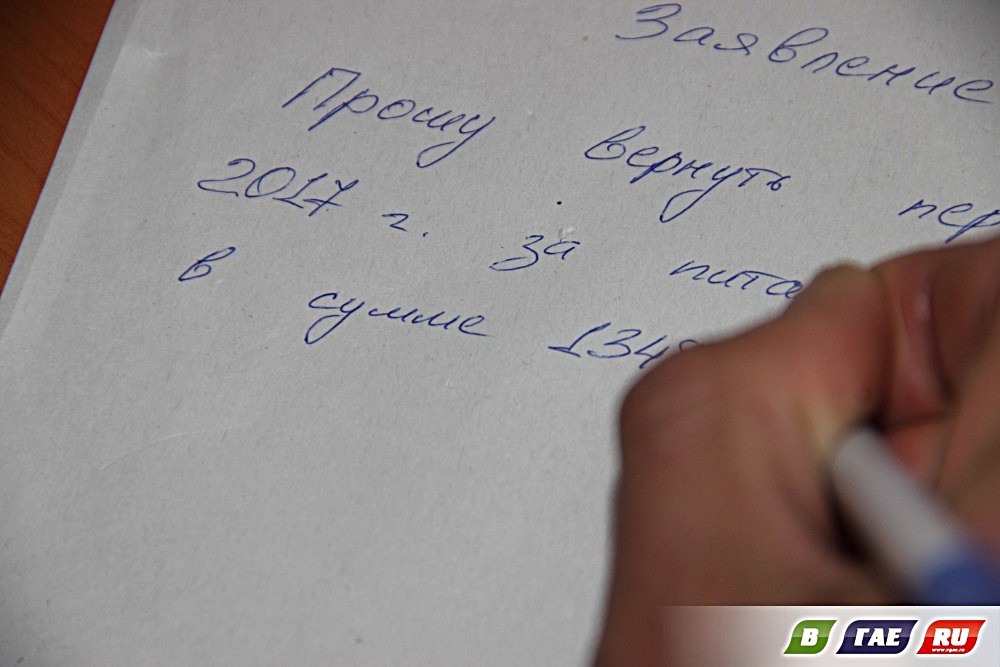 Заявление
Прошу вернуть пер
2017 г. за пита
в сумме 134
В ГАЕ RU
www.vgae.ru